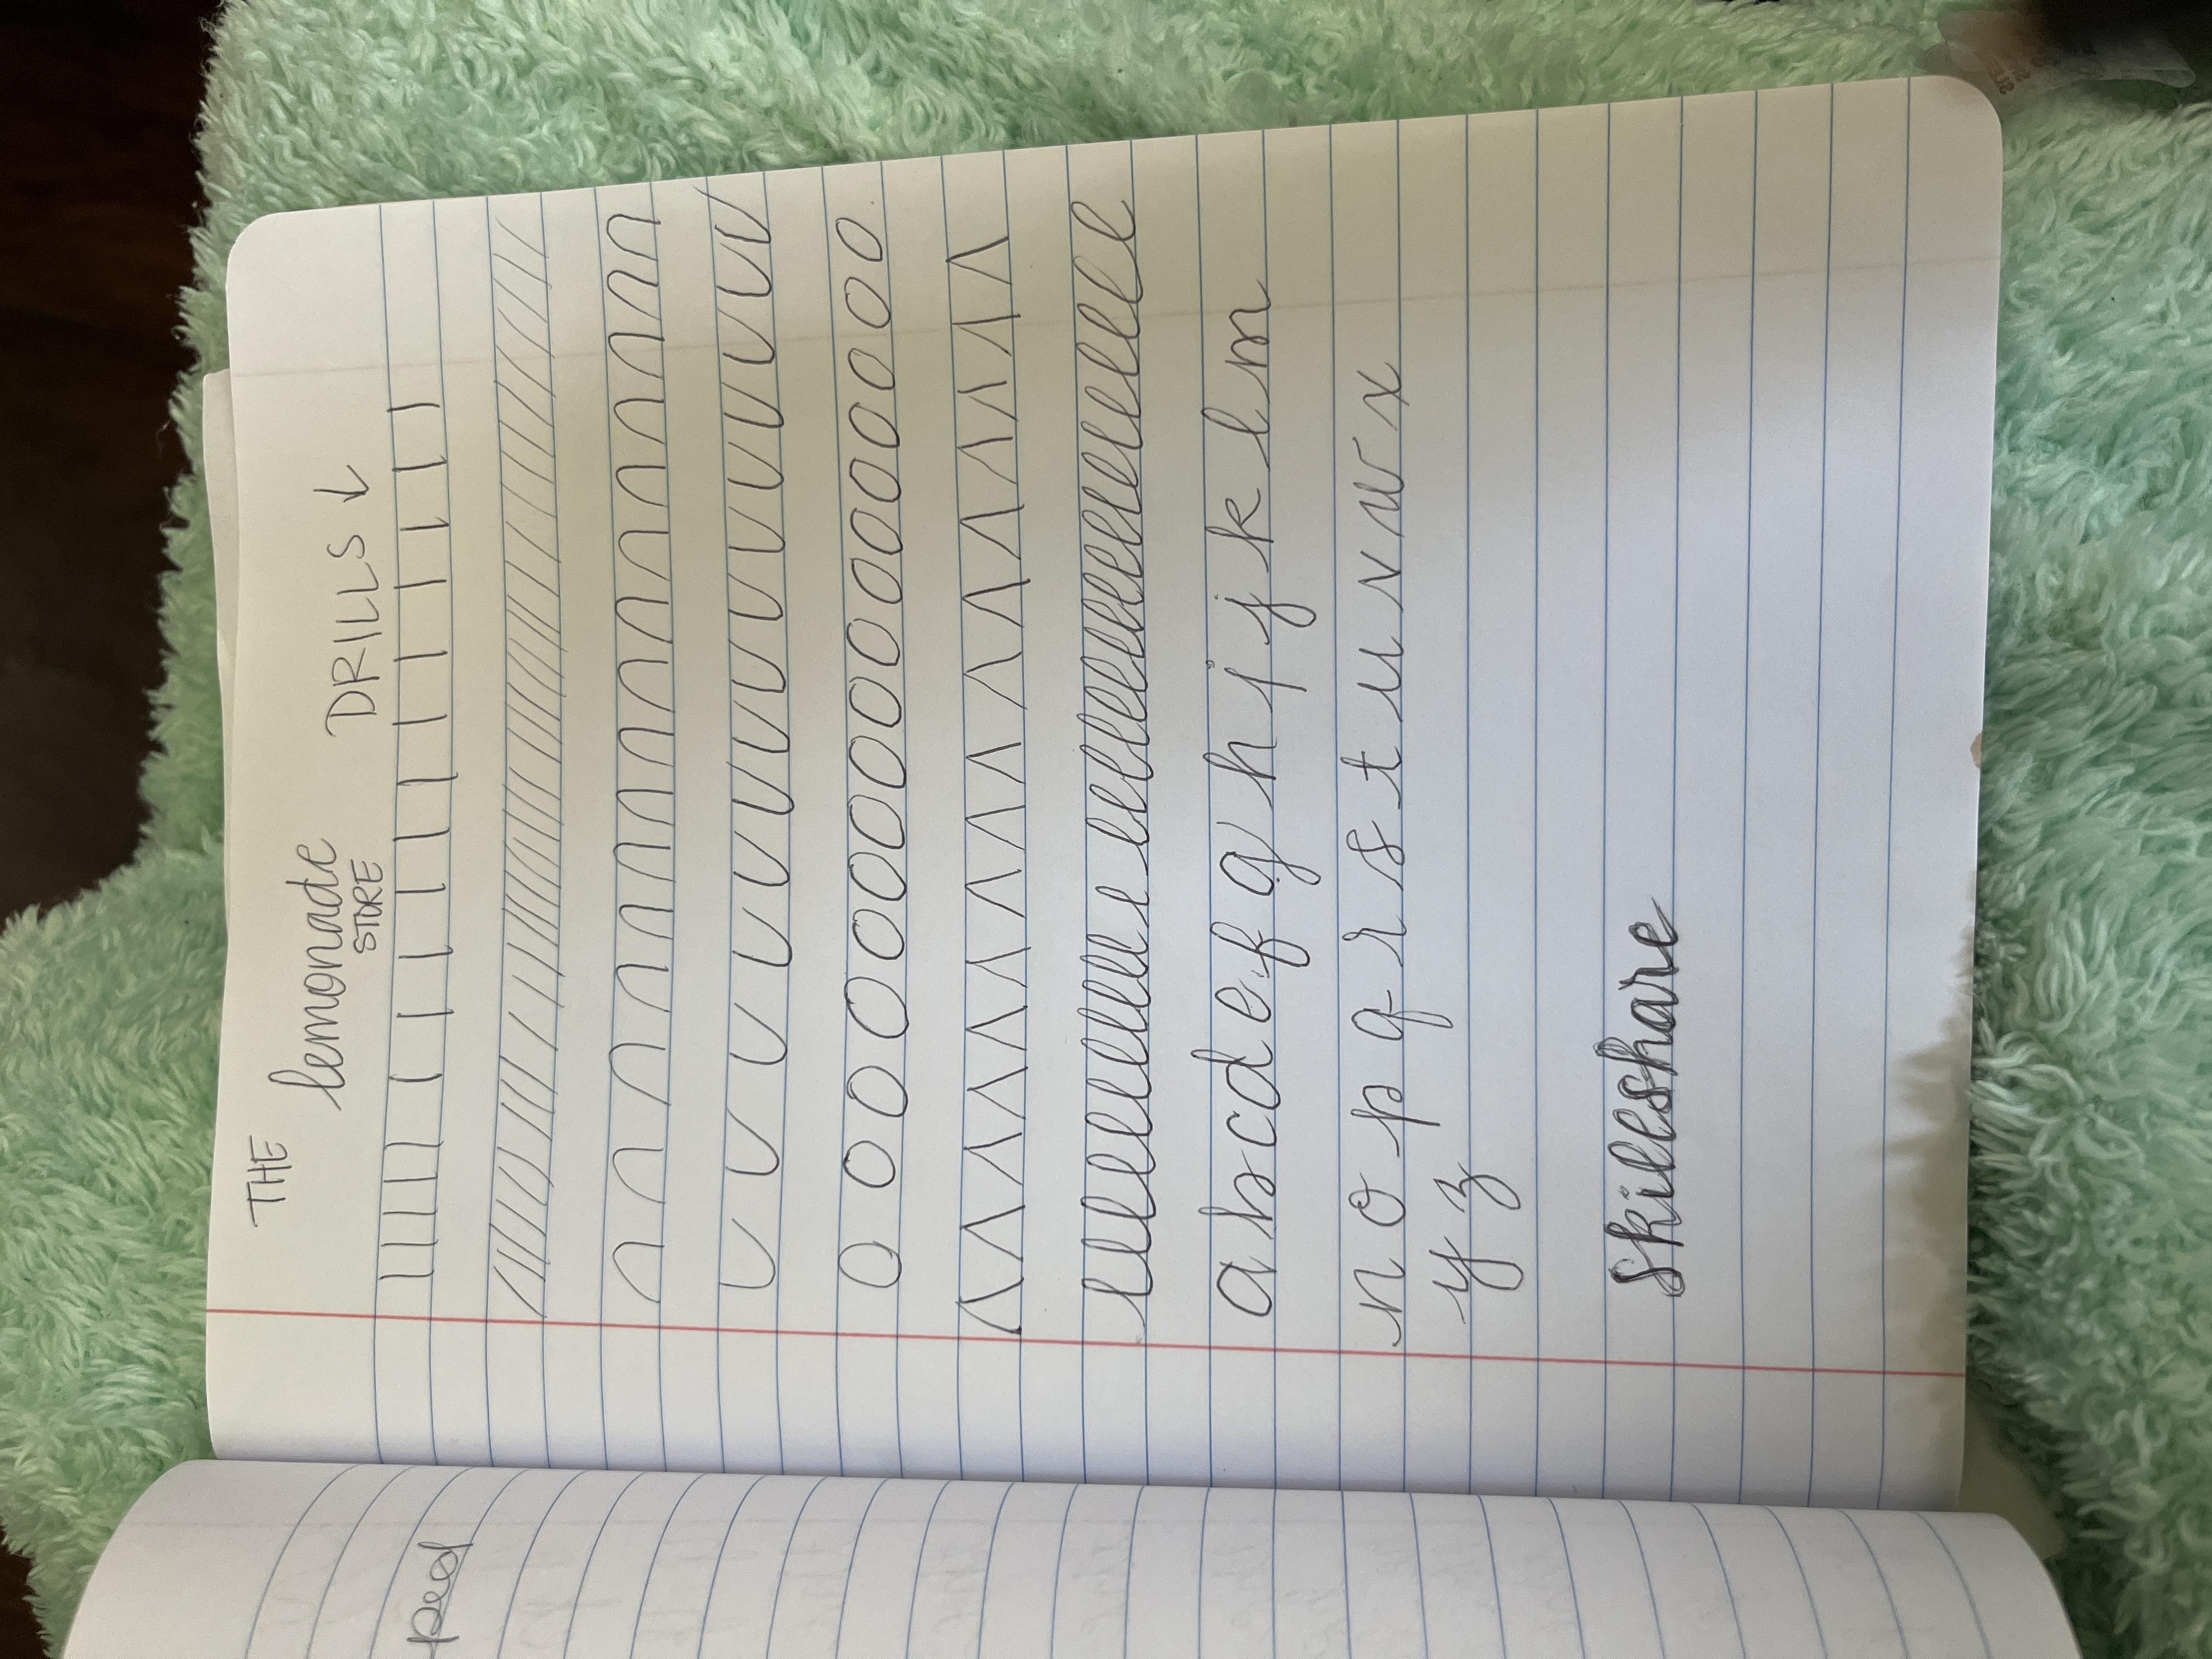 THE
lemonade
STORE
DRILLS ↓
a b c d e f g h i j k l m
n o p q r s t u v w x
y z
Skillshare
ped